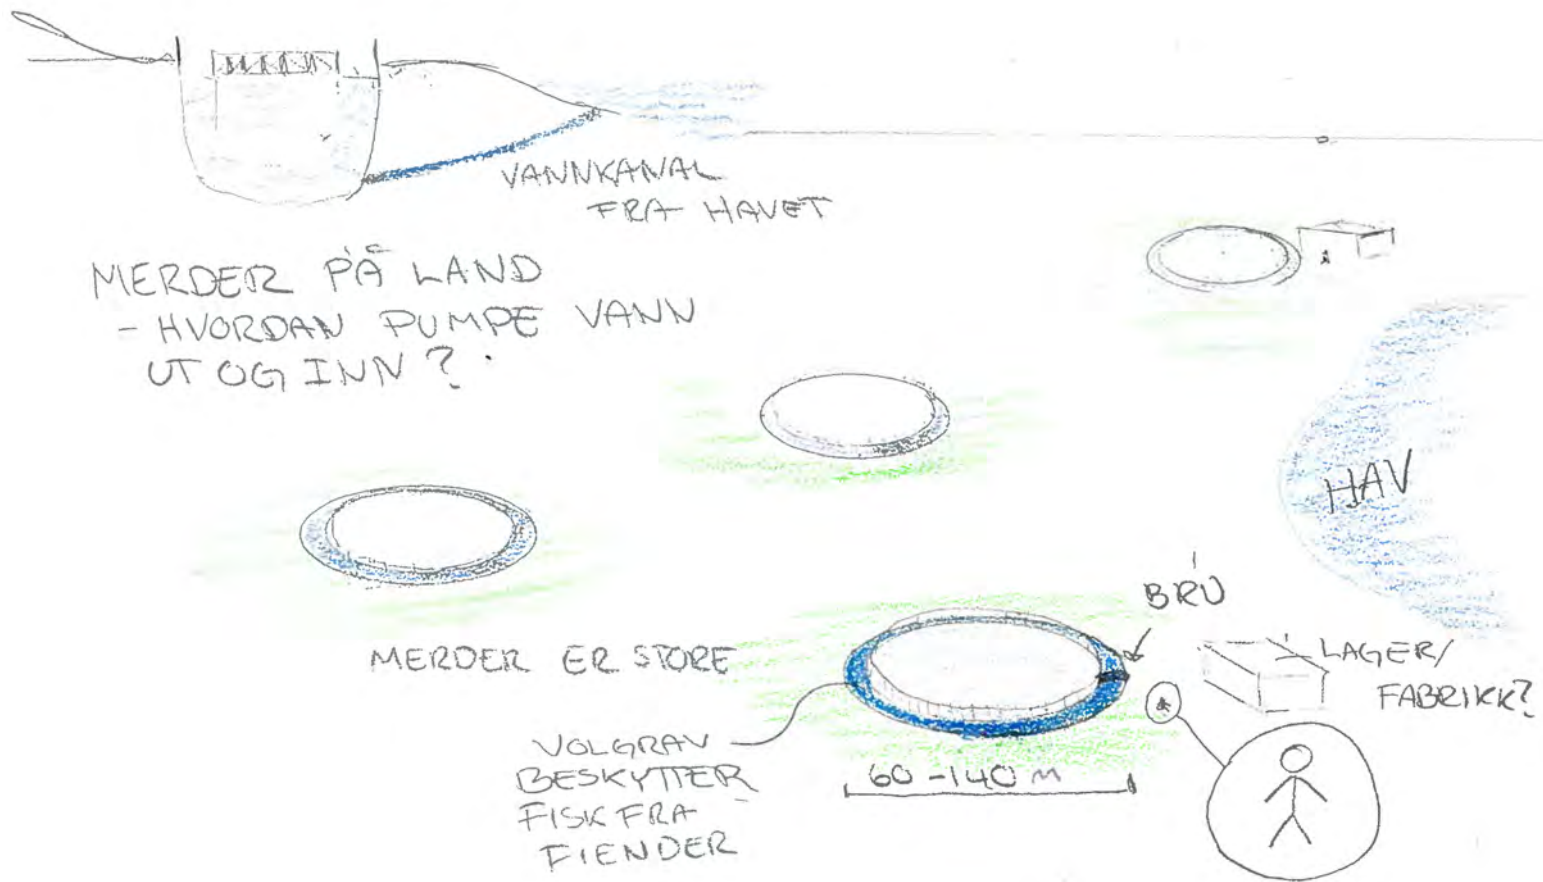 VANNKANAL
FRA HAVET
MERDER PÅ LAND
- HVORDAN PUMPE VANN
UT OG INN?
HAV
BRU
MERDER ER STORE
LAGER/
FABRIKK?
VOLGRAV
BESKYTTER
FISK FRA
FIENDER
60-140 M